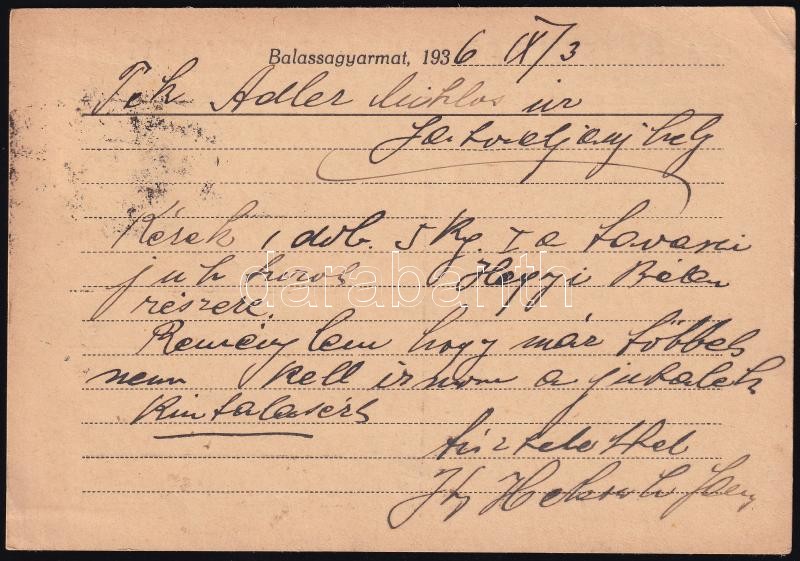 Balassagyarmat, 1936 IX/3
Tek Adler Miklós úr
Kérek 1 dob. 5 kg. I a tavaszi
juh túrót Hegyi Béla
részére.
Reménylem hogy már többet
nem kell irnom a jutalék
kiutalásért
tisztelettel
darabanth